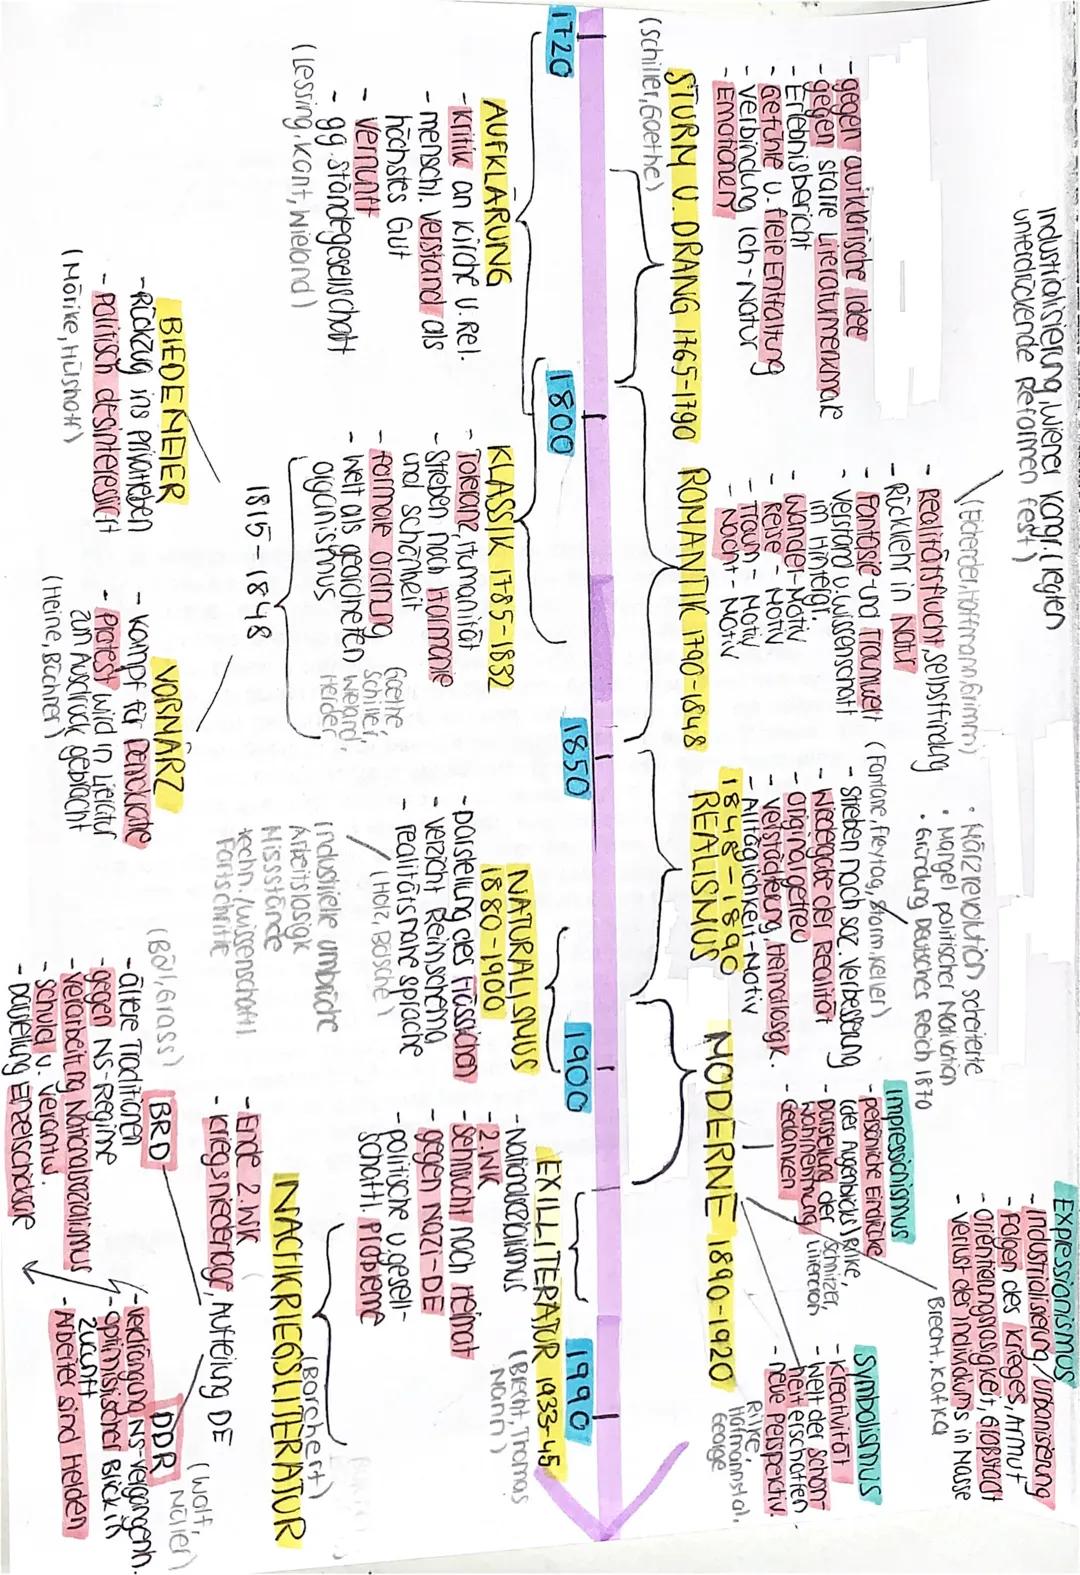 Industrialisierung, Wiener Kongr. (legten
unterdrückende Reformen fest)
- gegen aufklärische Idee
- gegen starre Literaturmerkmale
- Erlebnisbericht
- Gefühle u. freie Entfaltung
- Verbindung Ich-Natur
- Emotionen
STURM U. DRANG 1765-1790
(Schiller, Goethe)
(Eichendorf, Hoffmann, Grimm)
- Realitätsflucht, Selbstfindung
- Rückkehr in Natur
- Fantasie- und Traumwelt
- Verstand u. Wissenschaft
im Hintergr.
- Wander-Motiv
- Reise-Motiv
- Traum-Motiv
- Nacht-Motiv
ROMANTIK 1790-1848
• Märzrevolution scheiterte
• Mangel politischer Motivation
• Gründung Deutsches Reich 1870
(Fontane, Freytag, Storm, Keller)
- Streben nach soz. Verbesserung
- Wiedergabe der Realität
- Originalgetreu
- Verstädterung, Heimatlosigk.
- Alltäglichkeit-Motiv
1848-1890
REALISMUS
Expressionismus
- Industrialisierung/Urbanisierung
- Folgen des Krieges, Armut
- Orientierungslosigkeit, Großstadt
- Verlust der Individuums in Masse
Brecht, Kafka
Impressionismus
- persönliche Eindrücke
(des Augenblicks)
- Darstellung der
Wahrnehmung
- Gedanken
Rilke,
Schnitzer,
Liliencron
Symbolismus
- Kreativität
- Welt der Schön-
heit erschaffen
- neue Perspektiv.
Rilke,
Hofmannstal,
George
MODERNE 1890-1920
1720
1800
1850
1900
1990
AUFKLÄRUNG
- Kritik an Kirche u. Rel.
- menschl. Verstand als
höchstes Gut
- Vernunft
- gg. Ständegesellschaft
(Lessing, Kant, Wieland)
KLASSIK 1785-1832
- Toleranz, Humanität
- Streben nach Harmonie
und Schönheit
- formale Ordnung
- Welt als geordneten
Organismus
Goethe,
Schiller,
Wieland,
Herder
1815-1848
BIEDEMEIER
- Rückzug ins Privatleben
- politisch desinteressiert
(Mörike, Hülshoff)
VORMÄRZ
- Kampf für Demokratie
- Protest wird in Literatur
zum Ausdruck gebracht
(Heine, Büchner)
NATURALISMUS
1880-1900
- Darstellung des Hässlichen
- Verzicht Reimschema
- realitätsnahe Sprache
(Holz, Bösche)
industrielle Umbrüche
Arbeitslosigk
Missstände
techn./wissenschaftl.
Fortschritte
EXILLITERATUR 1933-45
- Nationalsozialismus
- 2. WK
- Sehnsucht nach Heimat
- gegen Nazi-DE
- politische u. gesell-
schaftl. Probleme
(Brecht, Thomas
Mann)
NACHKRIEGSLITERATUR
(Borchert)
- Ende 2. WK
- Kriegsniederlage, Aufteilung DE
BRD
(Böll, Grass)
- ältere Traditionen
- gegen NS-Regime
- Verarbeitng Nationalsozialismus
- Schuld u. Verantw.
DDR
(Wolf,
Müller)
- Verdrängung NS-Vergangenh.
- optimistischer Blick in
Zukunft
- Arbeiter sind Helden